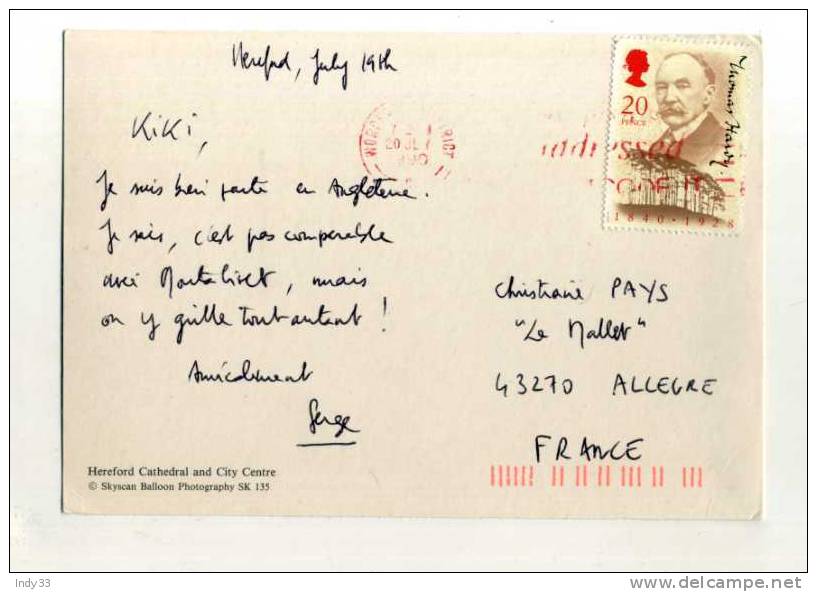 Hereford, July 19th
KiKi,
Je suis bien partie en Angleterre.
Je sais, c'est pas comparable
avec Montalivet, mais
on y grille tout autant !
Amicalement
Serge
Hereford Cathedral and City Centre
© Skyscan Balloon Photography SK 135
20
PENCE
Thomas Hardy.
1840 · 1928
20 JL
1990
addressed
Christiane PAYS
"Le Mallet"
43270 ALLEGRE
FRANCE
Indy33
www.delcampe.net